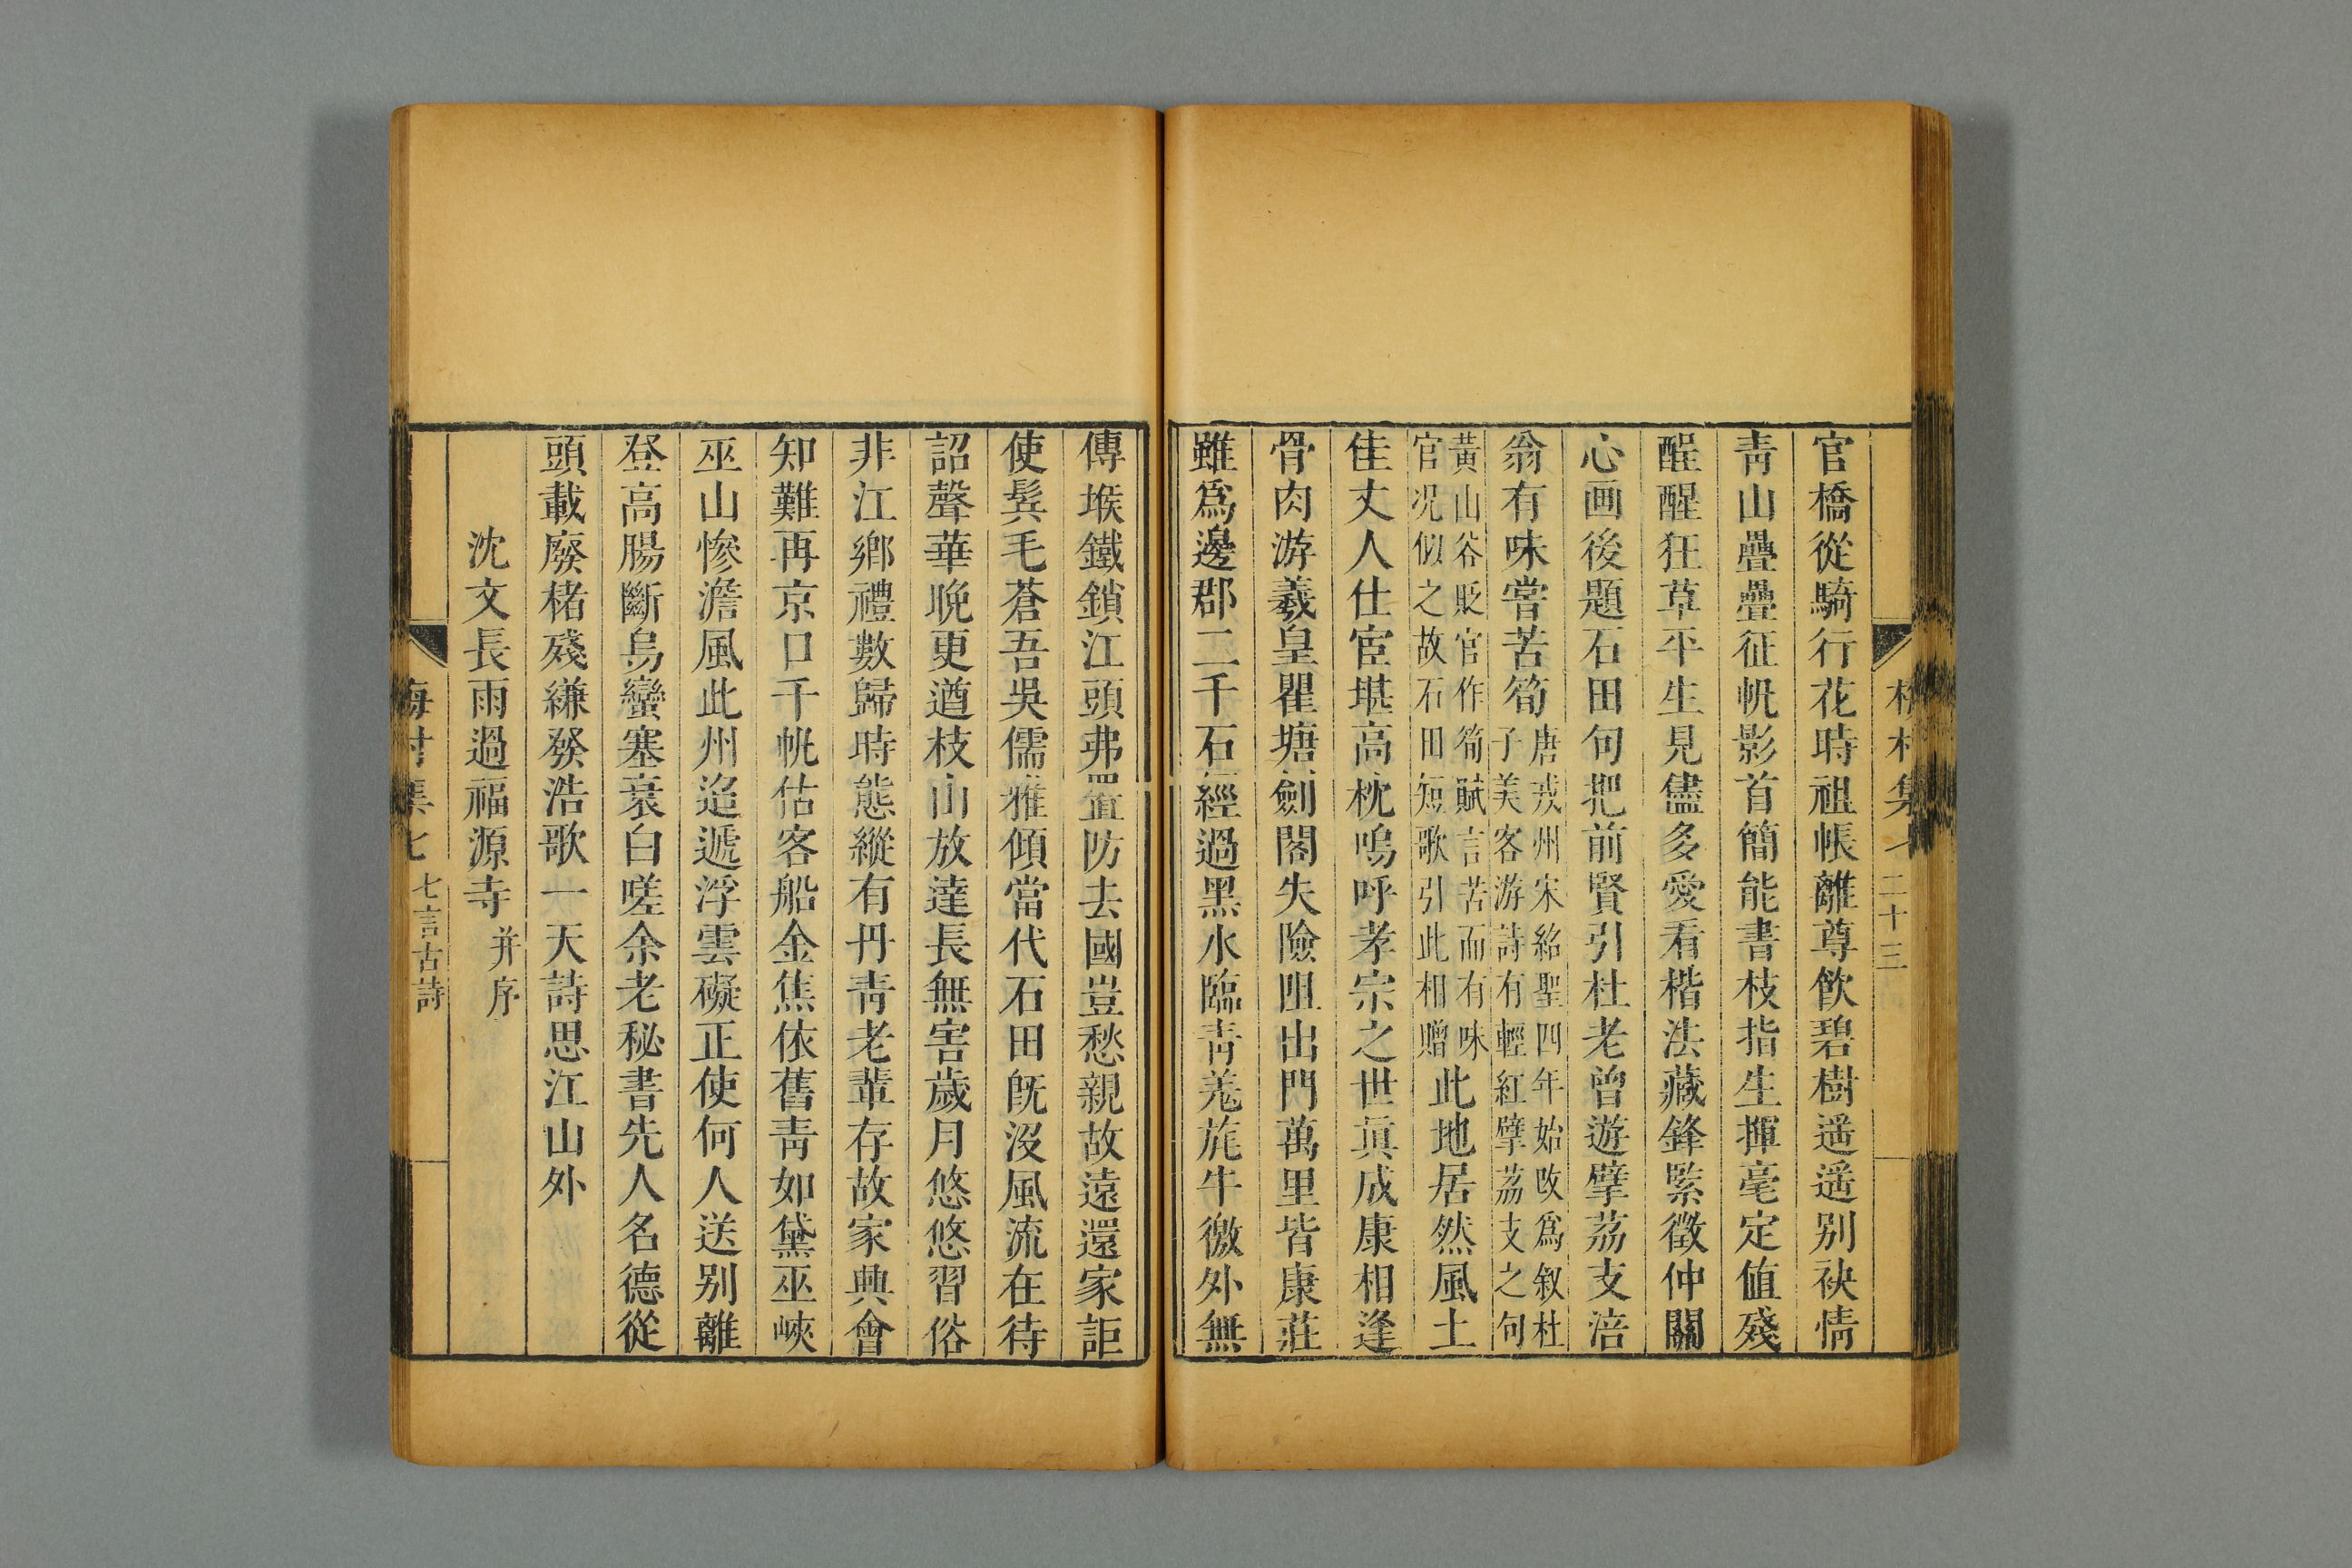 二十三
官橋從騎行花時祖帳離尊飲碧樹遥遥别袂情
青山疊疊征帆影首簡能書枝指生揮毫定値殘
酲醒狂草平生見儘多愛看楷法藏鋒緊徵仲關
心画後題石田句把前賢引杜老曾遊擘荔支涪
翁有味嘗苦筍唐戎州宋紹聖四年始改爲叙杜
子美客游詩有輕紅擘荔支之句
黃山谷貶官作筍賦言苦而有味
官况似之故石田短歌引此相贈此地居然風土
佳丈人仕宦堪高枕嗚呼孝宗之世眞成康相逢
骨肉游羲皇瞿塘劍閣失險阻出門萬里皆康莊
雖爲邊郡二千石經過黑水臨青羗旄牛徼外無
傳堠鐵鎖江頭弗置防去國豈愁親故遠還家詎
使鬓毛蒼吾吳儒雅傾當代石田旣沒風流在待
詔聲華晚更遒枝山放達長無害歲月悠悠習俗
非江鄉禮數歸時態縱有丹青老輩存故家典會
知難再京口千帆估客船金焦依舊青如黛巫峽
巫山慘澹風此州迢遞浮雲礙正使何人送別離
登高腸斷烏蠻塞衰白嗟余老秘書先人名德從
頭載廢楮殘縑發浩歌一天詩思江山外
沈文長雨過福源寺并序
七言古詩